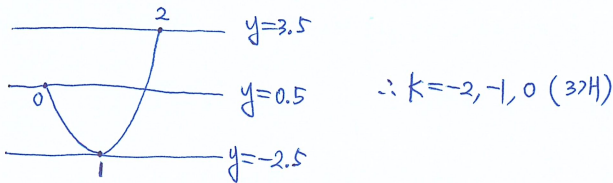 2
y=3.5
0
y=0.5
∴ k=-2, -1, 0 (3개)
1
y=-2.5